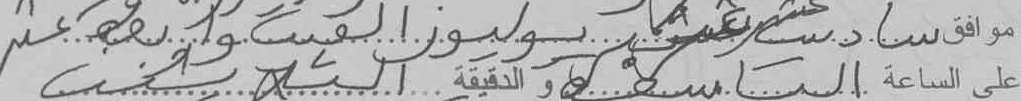 موافق سادس عشر يوليوز ألفين وأربعة عشر
على الساعة التاسعة و الدقيقة الثلاثين